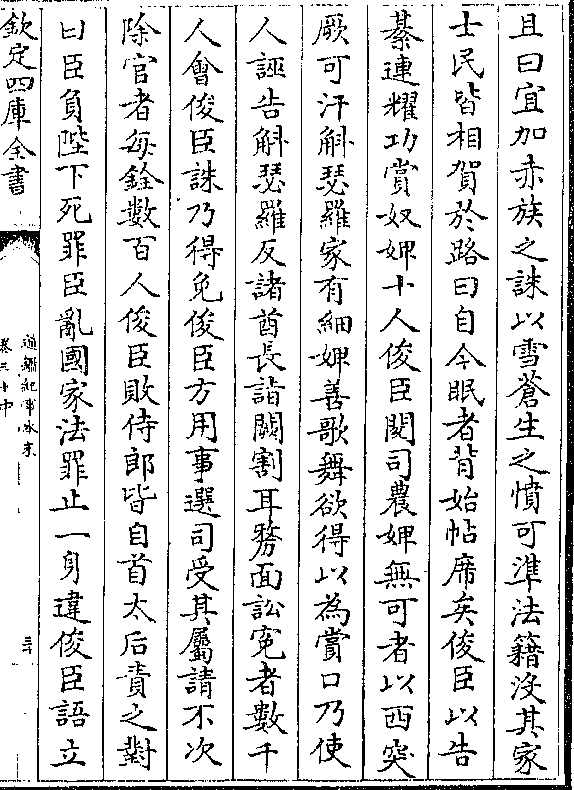 且曰宜加赤族之誅以雪蒼生之憤可準法籍沒其家
士民皆相賀於路曰自今眠者背始帖席矣俊臣以告
綦連耀功賞奴婢十人俊臣閱司農婢無可者以西突
厥可汗斛瑟羅家有細婢善歌舞欲得以為賞口乃使
人誣告斛瑟羅反諸酋長詣闕割耳剺面訟寃者數千
人會俊臣誅乃得免俊臣方用事選司受其屬請不次
除官者每銓數百人俊臣敗侍郎皆自首太后責之對
曰臣負陛下死罪臣亂國家法罪止一身違俊臣語立
欽定四庫全書
通鑑紀事本末
卷三十中